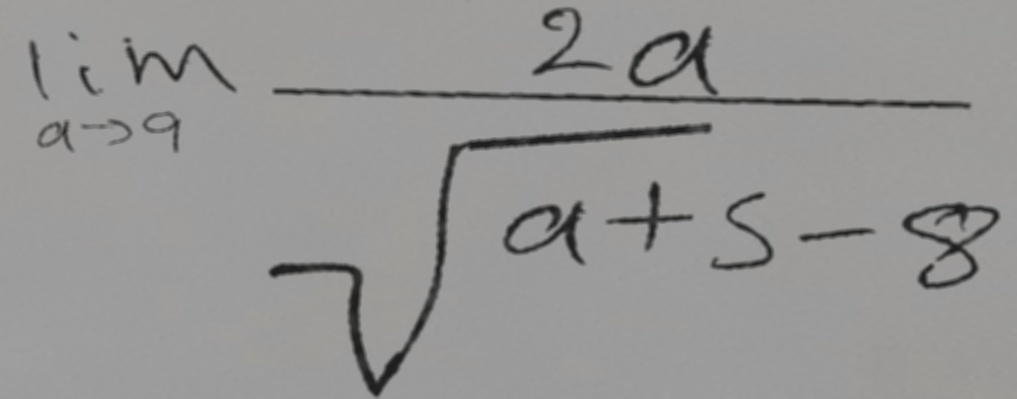 lim a→9 2a / √(a+5-8)